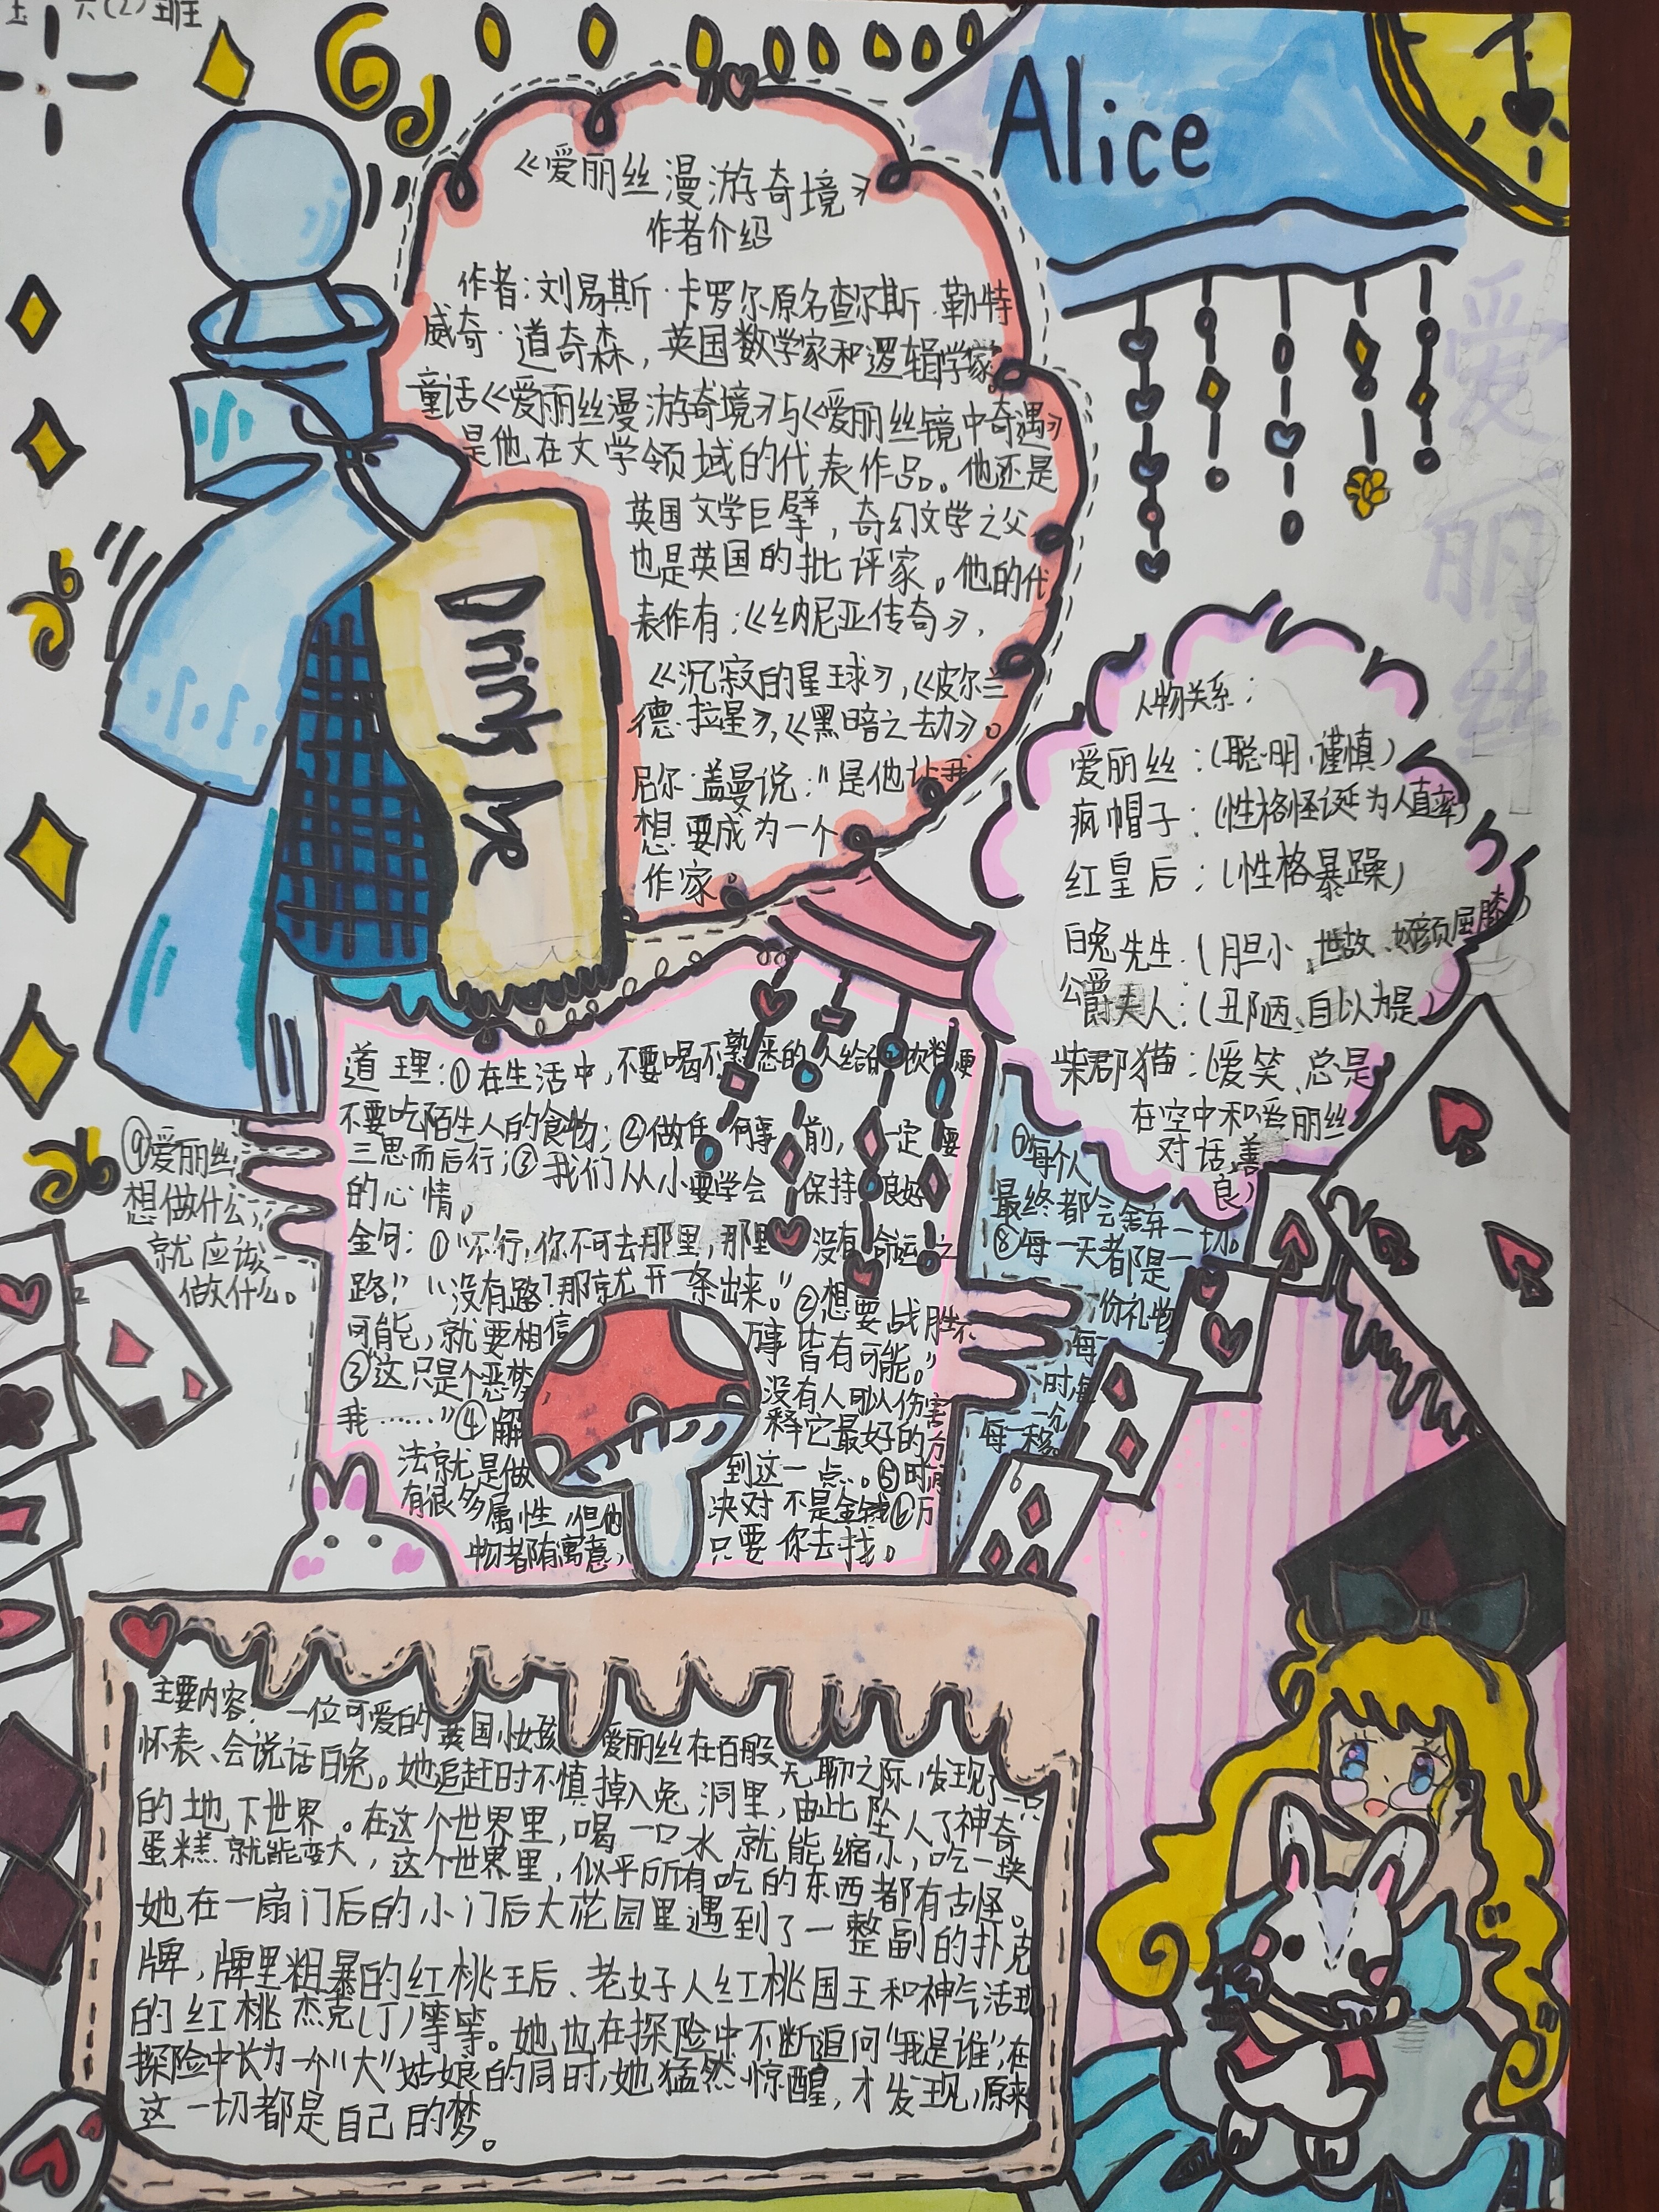 六(2)班
Alice
爱丽丝
《爱丽丝漫游奇境》
作者介绍
作者:刘易斯·卡罗尔原名查尔斯·勒特
威奇·道奇森,英国数学家和逻辑学家
童话《爱丽丝漫游奇境》与《爱丽丝镜中奇遇》
是他在文学领域的代表作品。他还是
英国文学巨擘,奇幻文学之父
也是英国的批评家。他的代
表作有:《纳尼亚传奇》,
《沉寂的星球》,《皮尔兰
德·拉星》,《黑暗之劫》。
尼尔·盖曼说:"是他让我
想要成为一个
作家。
Drink Me
人物关系:
爱丽丝:(聪明,谨慎)
疯帽子:(性格怪诞为人直率)
红皇后:(性格暴躁)
白兔先生.(胆小、世故、奴颜屈膝)
公爵夫人:(丑陋、自以为是)
柴郡猫:(爱笑、总是
在空中和爱丽丝
对话,善
良)
道理:①在生活中,不要喝不熟悉的人给的饮料,更
不要吃陌生人的食物;②做任何事前,一定要
三思而后行;③我们从小要学会保持良好
的心情。
金句:①"不行,你不可去那里,那里没有命运之
路""没有路!那就开一条出来。"②想要战胜不
可能,就要相信万事皆有可能。"
③"这只是个恶梦没有人可以伤害
我……"④解释它最好的方
法就是做到这一点。⑤时间
有很多属性,但他决对不是金钱⑥万
物者都有寓意,只要你去找。
⑦每个人
最终都会舍弃一切。
⑧每一天都是一
份礼物
每一
时每
一分
每一秒。
⑨爱丽丝
想做什么,
就应该
做什么。
主要内容:一位可爱的英国小女孩爱丽丝在百般无聊之际,发现了一只
怀表、会说话白兔。她追赶时不慎掉入兔洞里,由此坠人了神奇
的地下世界。在这个世界里,喝一口水就能缩小,吃一块
蛋糕就能变大,这个世界里,似乎所有吃的东西都有古怪。
她在一扇门后的小门后大花园里遇到了一整副的扑克
牌,牌里粗暴的红桃王后、老好人红桃国王和神气活现
的红桃杰克(J)等等。她也在探险中不断追问"我是谁",在
探险中长为一个"大"姑娘的同时,她猛然惊醒,才发现,原来
这一切都是自己的梦。